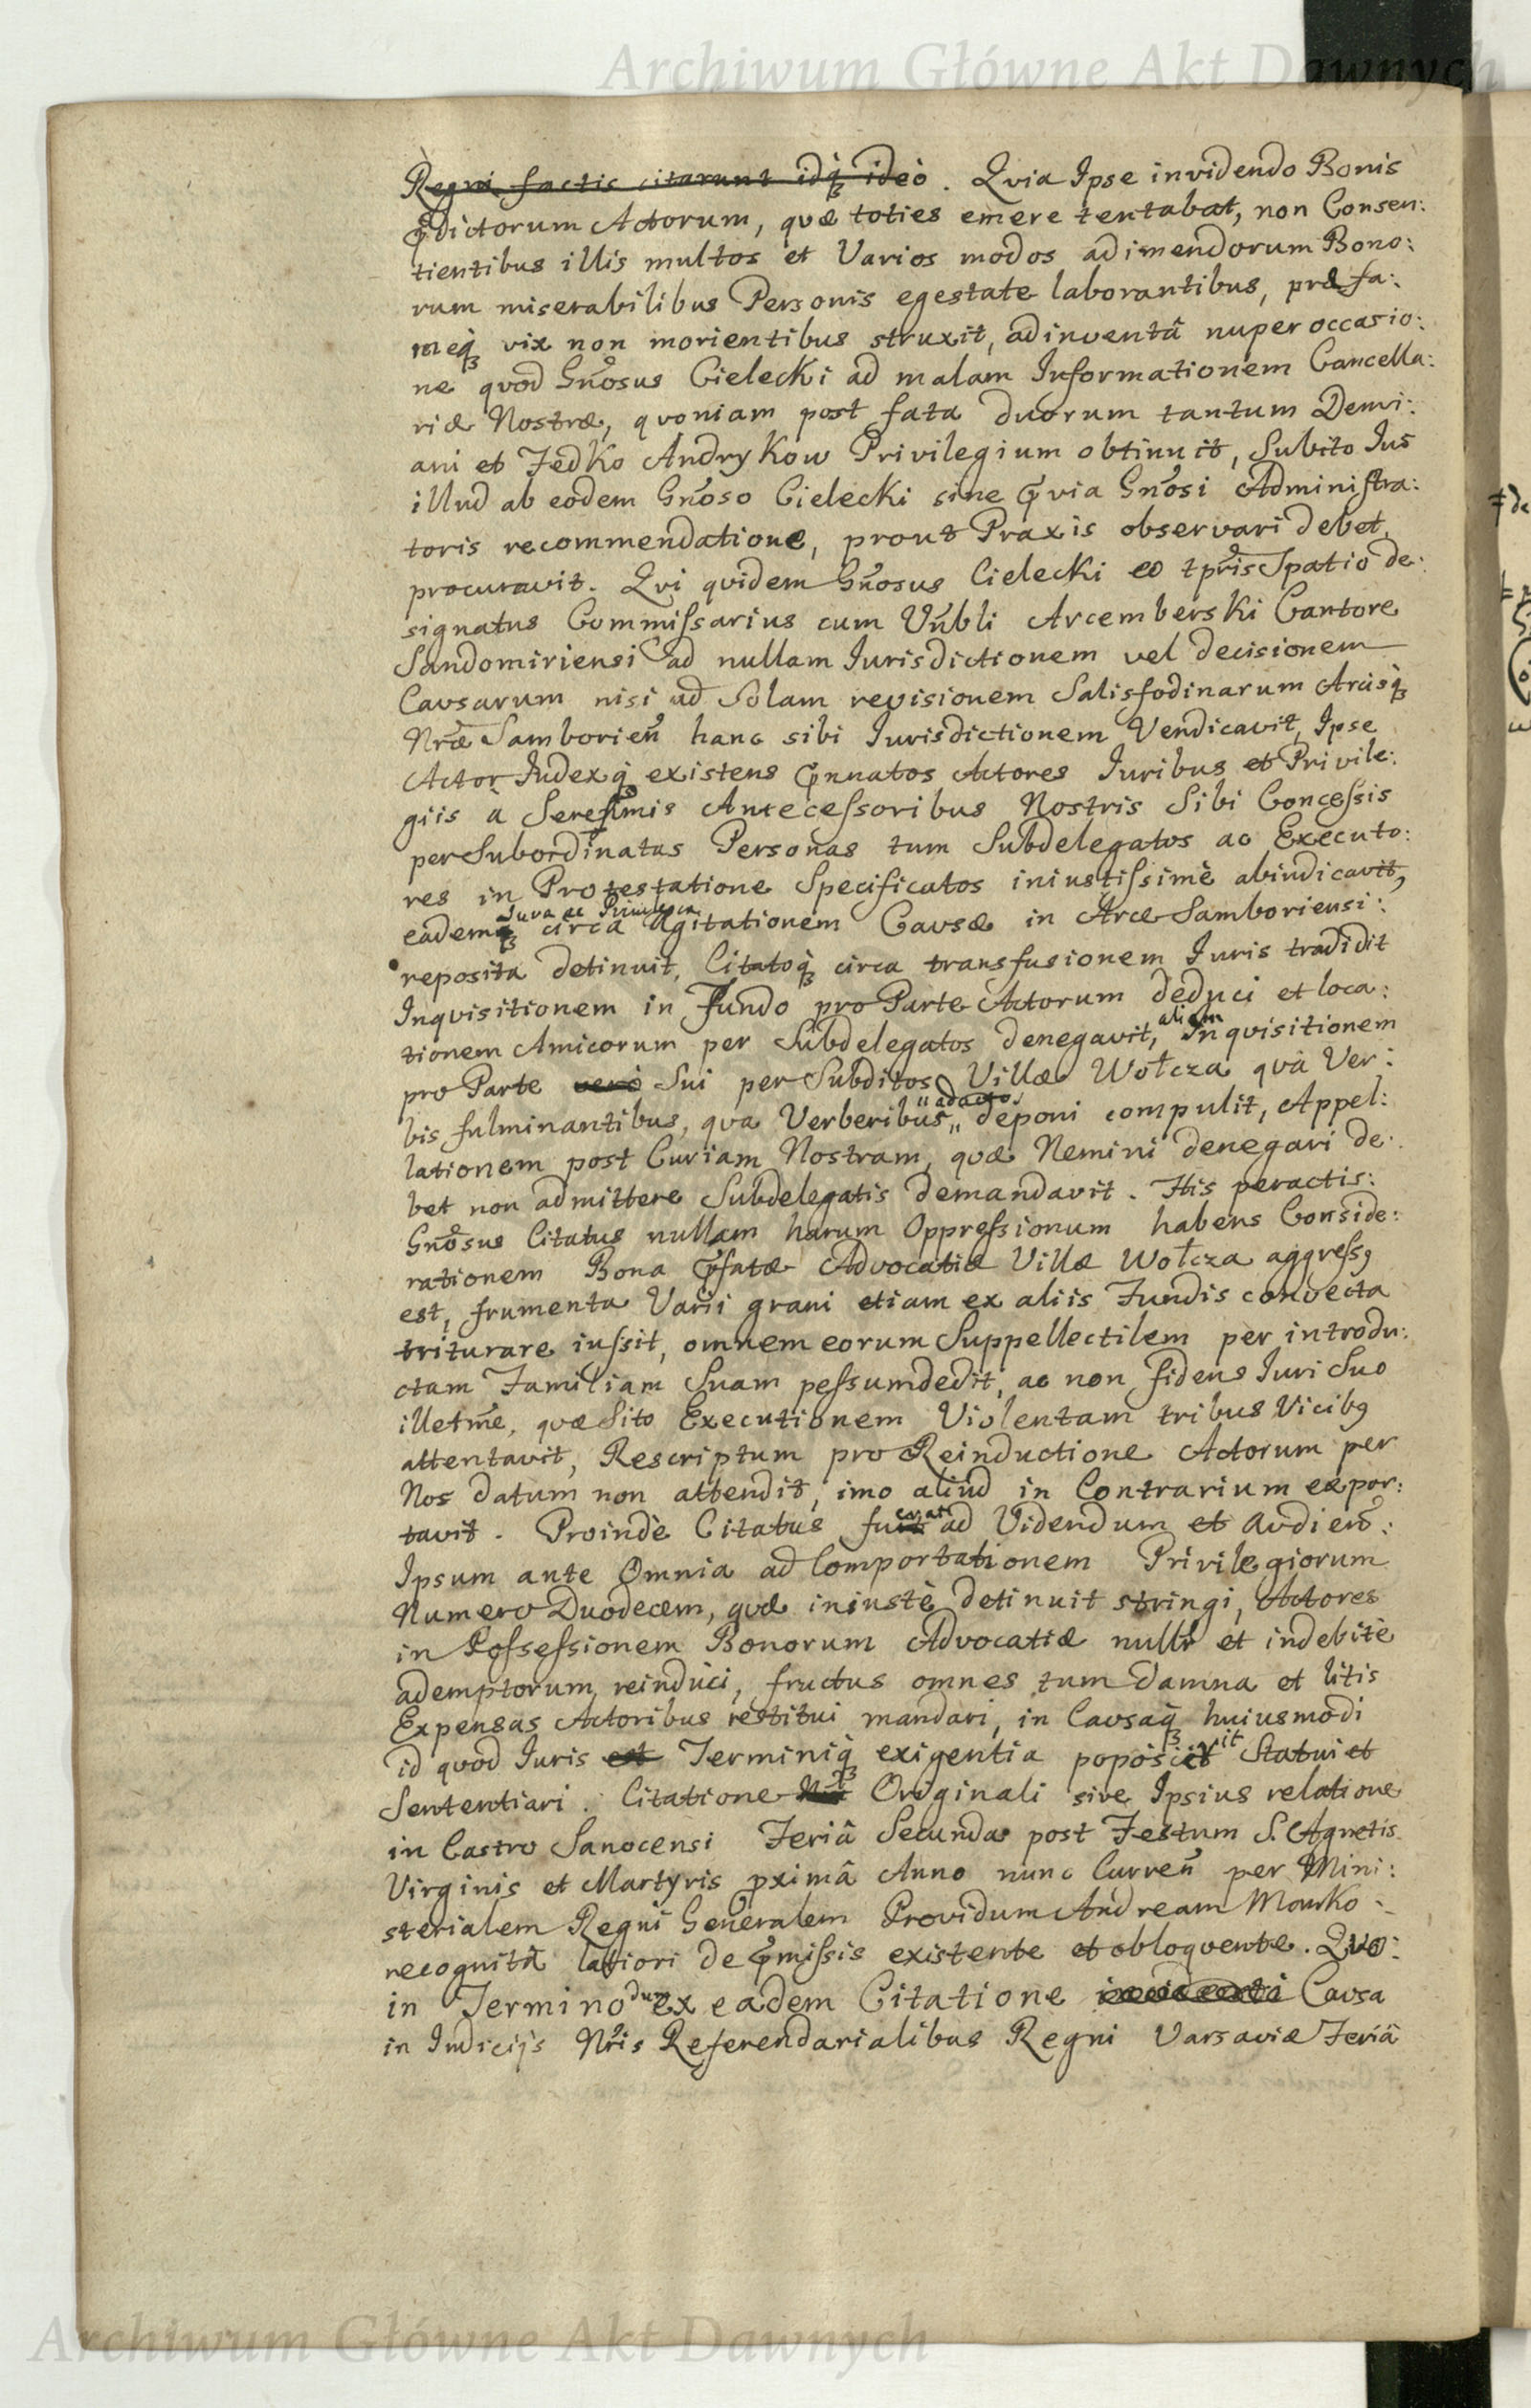 Archiwum Główne Akt Dawnych
Regni factis citarunt idq́ʒ ideò. Qvia Ipse invidendo Bonis
p̃dictorum Actorum, quæ toties emere tentabat, non Consen:
tientibus illis multos et Varios modos adimendorum Bono:
rum miserabilibus Personis egestate laborantibus, præ fa:
meq́ʒ vix non morientibus struxit, adinventâ nuper occasio:
ne quod Gn̄osus Cielecki ad malam Informationem Cancella:
riæ Nostræ, qvoniam post fata duorum tantum Demi:
ani et Fedko Andrykow Privilegium obtinuit, Subito Ius
illud ab eodem Gn̄oso Cielecki sine p̃via Gn̄osi Administra:
toris recommendatione, prout Praxis observari debet,
procuravit. Qvi qvidem Gn̄osus Cielecki eo tp̄ris Spatio de:
signatus Commissarius cum Vn̄bli Arcemberski Cantore
Sandomiriensi ad nullam Iurisdictionem vel decisionem
Causarum nisi ad Solam revisionem Salisfodinarum Arcisq́ʒ
Nr̄æ Samborien̄ hanc sibi Iurisdictionem Vendicavit, Ipse
Actor Iudexq́ existens p̃nnatos Actores Iuribus et Privile:
giis a Seressimis Antecessoribus Nostris Sibi Concessis
per Subordinatas Personas tum Subdelegatos ac Executo:
res in Protestatione Specificatos iniustissimè abiudicavit,
Iura ac Privilegia
eademqʒ circa Agitationem Causæ in Arce Samboriensi:
reposita detinuit, Citatoq́ʒ circa transfusionem Iuris tradidit
Inqvisitionem in Fundo pro Parte Actorum deduci et loca:
tionem Amicorum per Subdelegatos denegavit, aliam Inqvisitionem
pro Parte verò Sui per Subditos Villæ Wołcza qvà Ver:
bis fulminantibus, qva Verberibus „adactos„ deponi compulit, Appel:
lationem post Curiam Nostram, quæ Nemini denegari de:
bet non admittere Subdelegatis demandavit. His peractis:
Gn̄osus Citatus nullam harum Oppressionum habens Conside:
rationem Bona p̃fatæ Advocatiæ Villæ Wołcza aggressꝰ
est, frumenta Varii grani etiam ex aliis Fundis convecta
triturare iussit, omnem eorum Suppellectilem per introdu:
ctam Familiam Suam pessumdedit, ac non fidens Iuri Suo
illetm̄e, quæsito Executionem Violentam tribus Vicibꝰ
attentavit, Rescriptum pro Reinductione Actorum per
Nos datum non attendit, imo aliud in Contrarium expor:
tavit. Proindè Citatus fuit erat ad Videndum et Audien̄:
Ipsum ante Omnia ad Comportationem Privilegiorum
Numero Duodecem, quæ iniustè detinuit stringi, Actores
in Possessionem Bonorum Advocatiæ nullr et indebitè
ademptorum reinduci, fructus omnes tum damna et litis
Expensas Actoribus restitui mandari, in Causaq́ʒ huiusmodi
id quod Iuris est Terminiq́ʒ exigentia poposcitit Statui et
Sententiari. Citatione Originali sive Ipsius relatione
in Castro Sanocensi Feriâ Secunda post Festum S. Agnetis
Virginis et Martyris p̱ximâ Anno nunc Curren̄ per Mini:
sterialem Regni Generalem Providum Andream Monko:
recognitâ latiori de p̃missis existente et obloqvente. Quo:
in Termino dum ex eadem Citatione Causa
in Iudicijs Nr̄is Referendarialibus Regni Varsaviæ Feriâ
Archiwum Główne Akt Dawnych